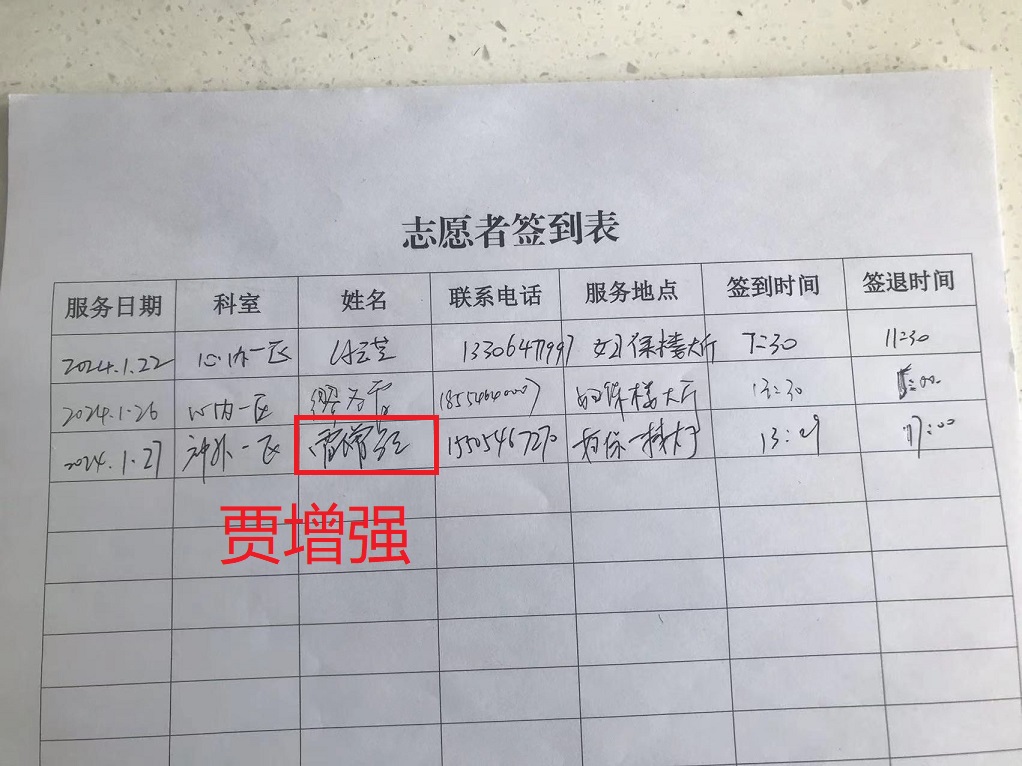 志愿者签到表
服务日期 科室 姓名 联系电话 服务地点 签到时间 签退时间
2024.1.22 心内一区 13306471997 妇保楼大厅 7:30 11:30
2024.1.26 心内一区 18554640007 妇保楼大厅 13:30 :00
2024.1.27 神外一区 贾增强 15505467270 13:09 17:00
贾增强